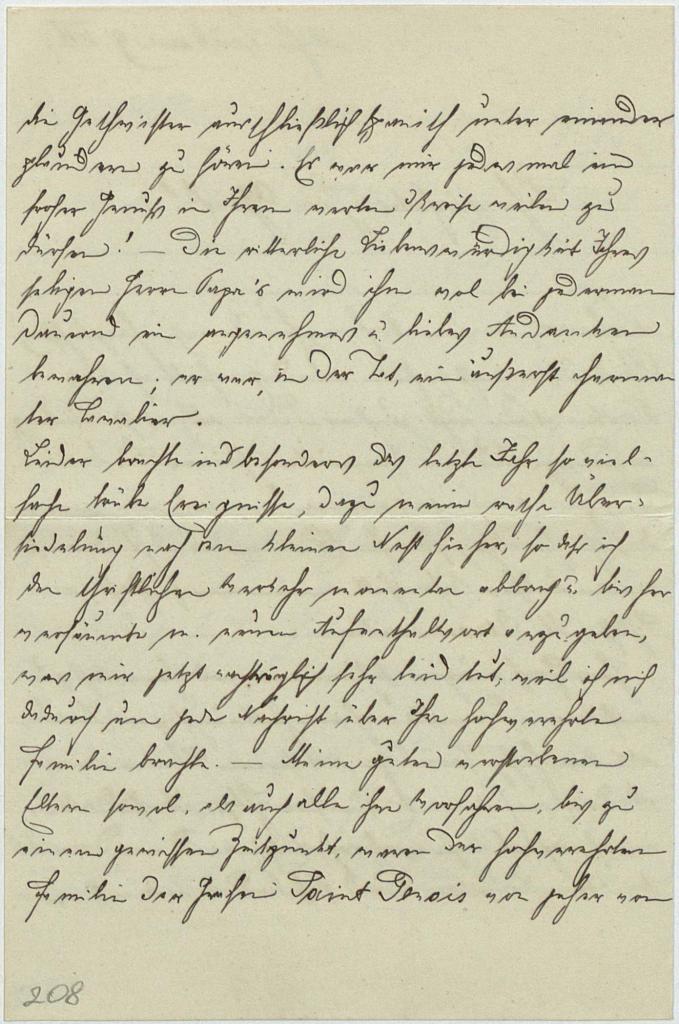 die Geschwister ausschließlich spanisch unter einander
plaudern zu hören. Es war mir jedesmal ein
froher Genuß in Ihrem werten Kreise weilen zu
dürfen! — Die ritterliche Liebenswürdigkeit Ihres
seligen Herrn Papa's wird ihm wol bei jedermann
dauernd ein angenehmes u. liebes Andenken
bewahren; er war, in der Tat, ein äußerst charman
ter Cavalier.
Leider brachte insbesonders das letzte Jahr so viel-
fache trübe Ereignisse, dazu meine rasche Über-
siedelung nach dem kleinen Nest hieher, so daß ich
den schriftlichen Verkehr momentan abbrach u. bisher
versäumte m. neuen Aufenthaltsort anzugeben,
was mir jetzt nachträglich sehr leid tut, weil ich mich
dadurch um jede Nachricht über Ihre hochverehrte
Familie brachte. — Meine guten verstorbenen
Eltern sowol, als auch alle ihre Vorfahren, bis zu
einem gewissen Zeitpunkt, waren der hochverehrten
Familie der Grafen Saint Genois von jeher von
208